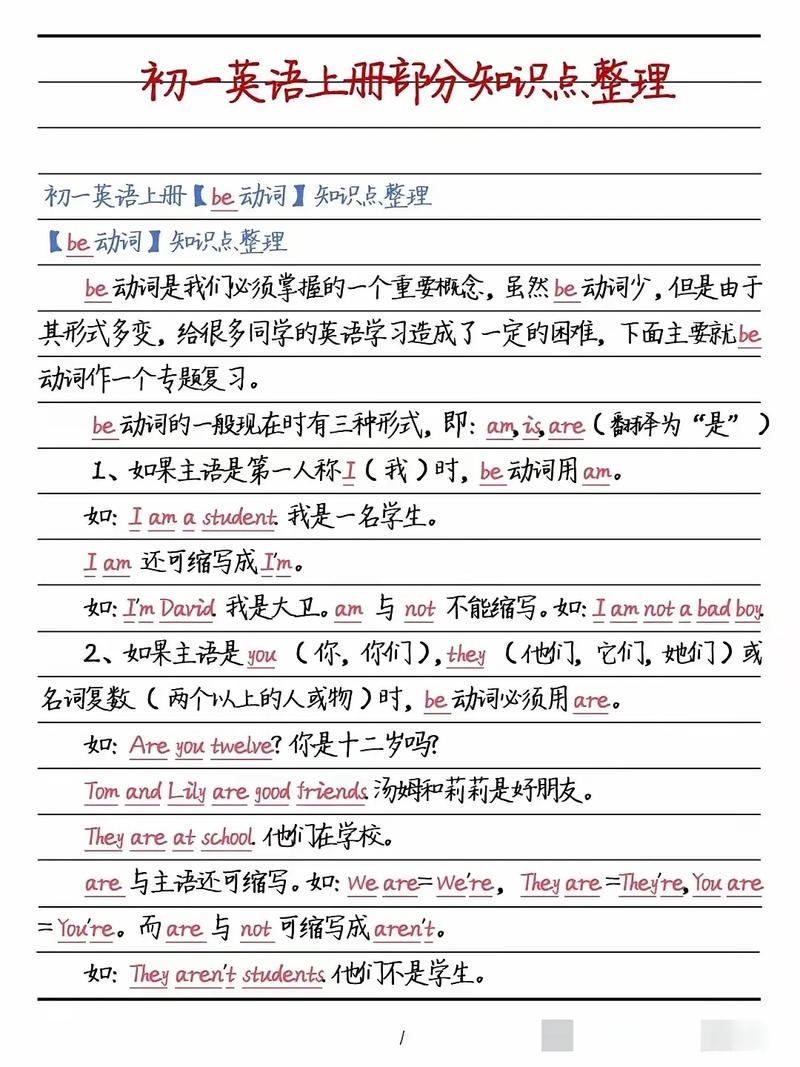 初一英语上册部分知识点整理
初一英语上册【be动词】知识点整理
【be动词】知识点整理
be动词是我们必须掌握的一个重要概念，虽然be动词少，但是由于
其形式多变，给很多同学的英语学习造成了一定的困难，下面主要就be
动词作一个专题复习。
be动词的一般现在时有三种形式，即：am,is,are（翻译为“是”）
1、如果主语是第一人称I（我）时，be动词用am。
如：I am a student. 我是一名学生。
I am 还可缩写成I'm。
如：I'm David. 我是大卫。am 与 not 不能缩写。如：I am not a bad boy.
2、如果主语是you （你，你们），they （他们，它们，她们）或
名词复数（两个以上的人或物）时，be动词必须用are。
如：Are you twelve? 你是十二岁吗?
Tom and Lily are good friends. 汤姆和莉莉是好朋友。
They are at school. 他们在学校。
are 与主语还可缩写。如：We are=We're， They are =They're,You are
=You're。而 are 与 not 可缩写成aren't。
如：They aren't students. 他们不是学生。
/